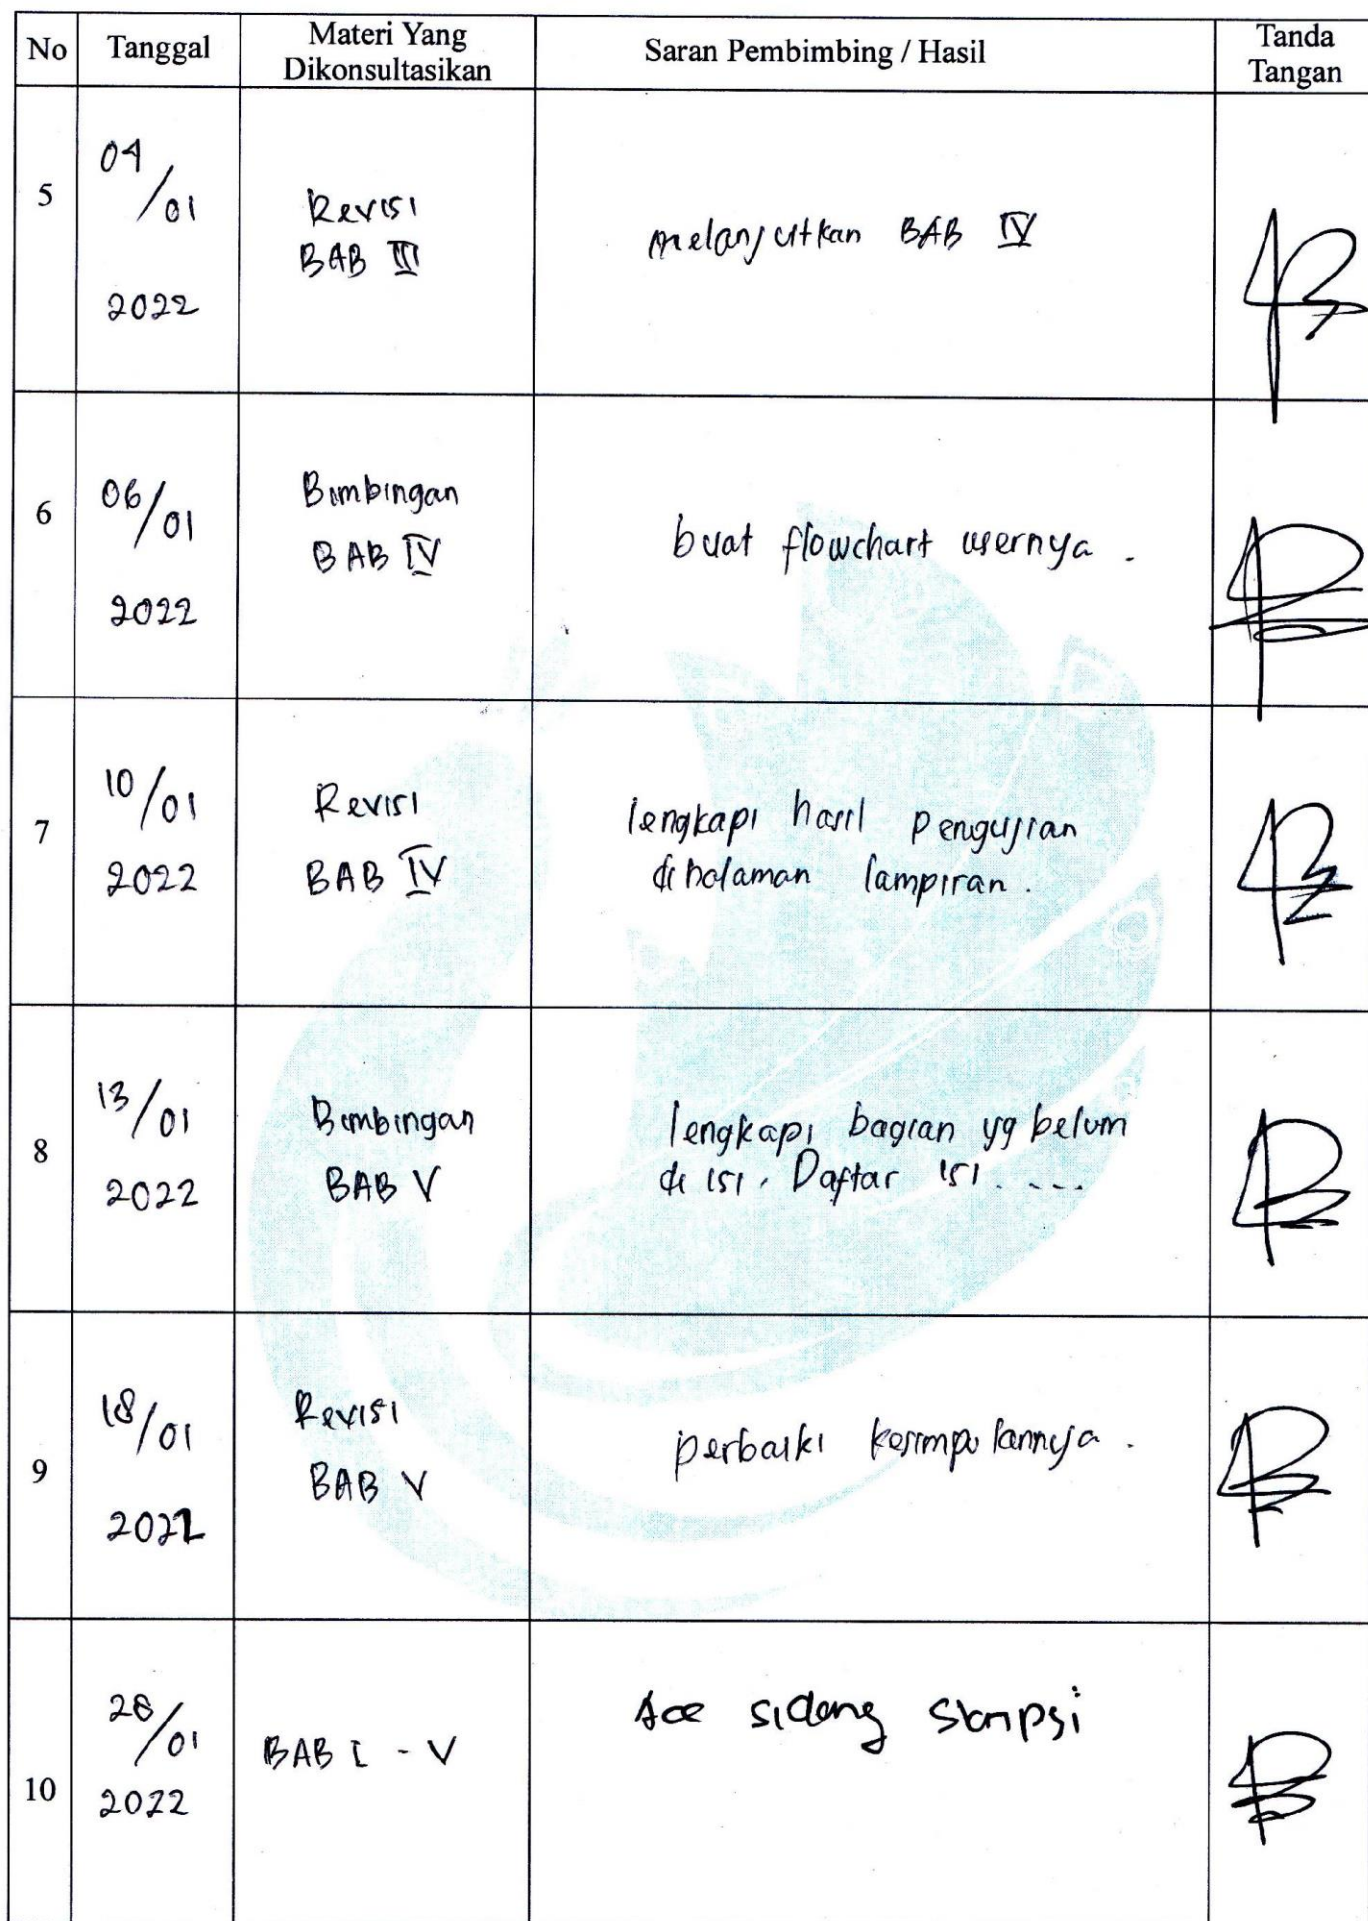 No
Tanggal
Materi Yang
Dikonsultasikan
Saran Pembimbing / Hasil
Tanda
Tangan
5
04/01
2022
Revisi
BAB III
melanjutkan BAB IV
6
06/01
2022
Bimbingan
BAB IV
buat flowchart usernya .
7
10/01
2022
Revisi
BAB IV
lengkapi hasil pengujian
di halaman lampiran .
8
13/01
2022
Bimbingan
BAB V
lengkapi bagian yg belum
di isi . Daftar isi . ...
9
18/01
2022
Revisi
BAB V
perbaiki kesimpulannya .
10
28/01
2022
BAB I - V
Acc sidang skripsi